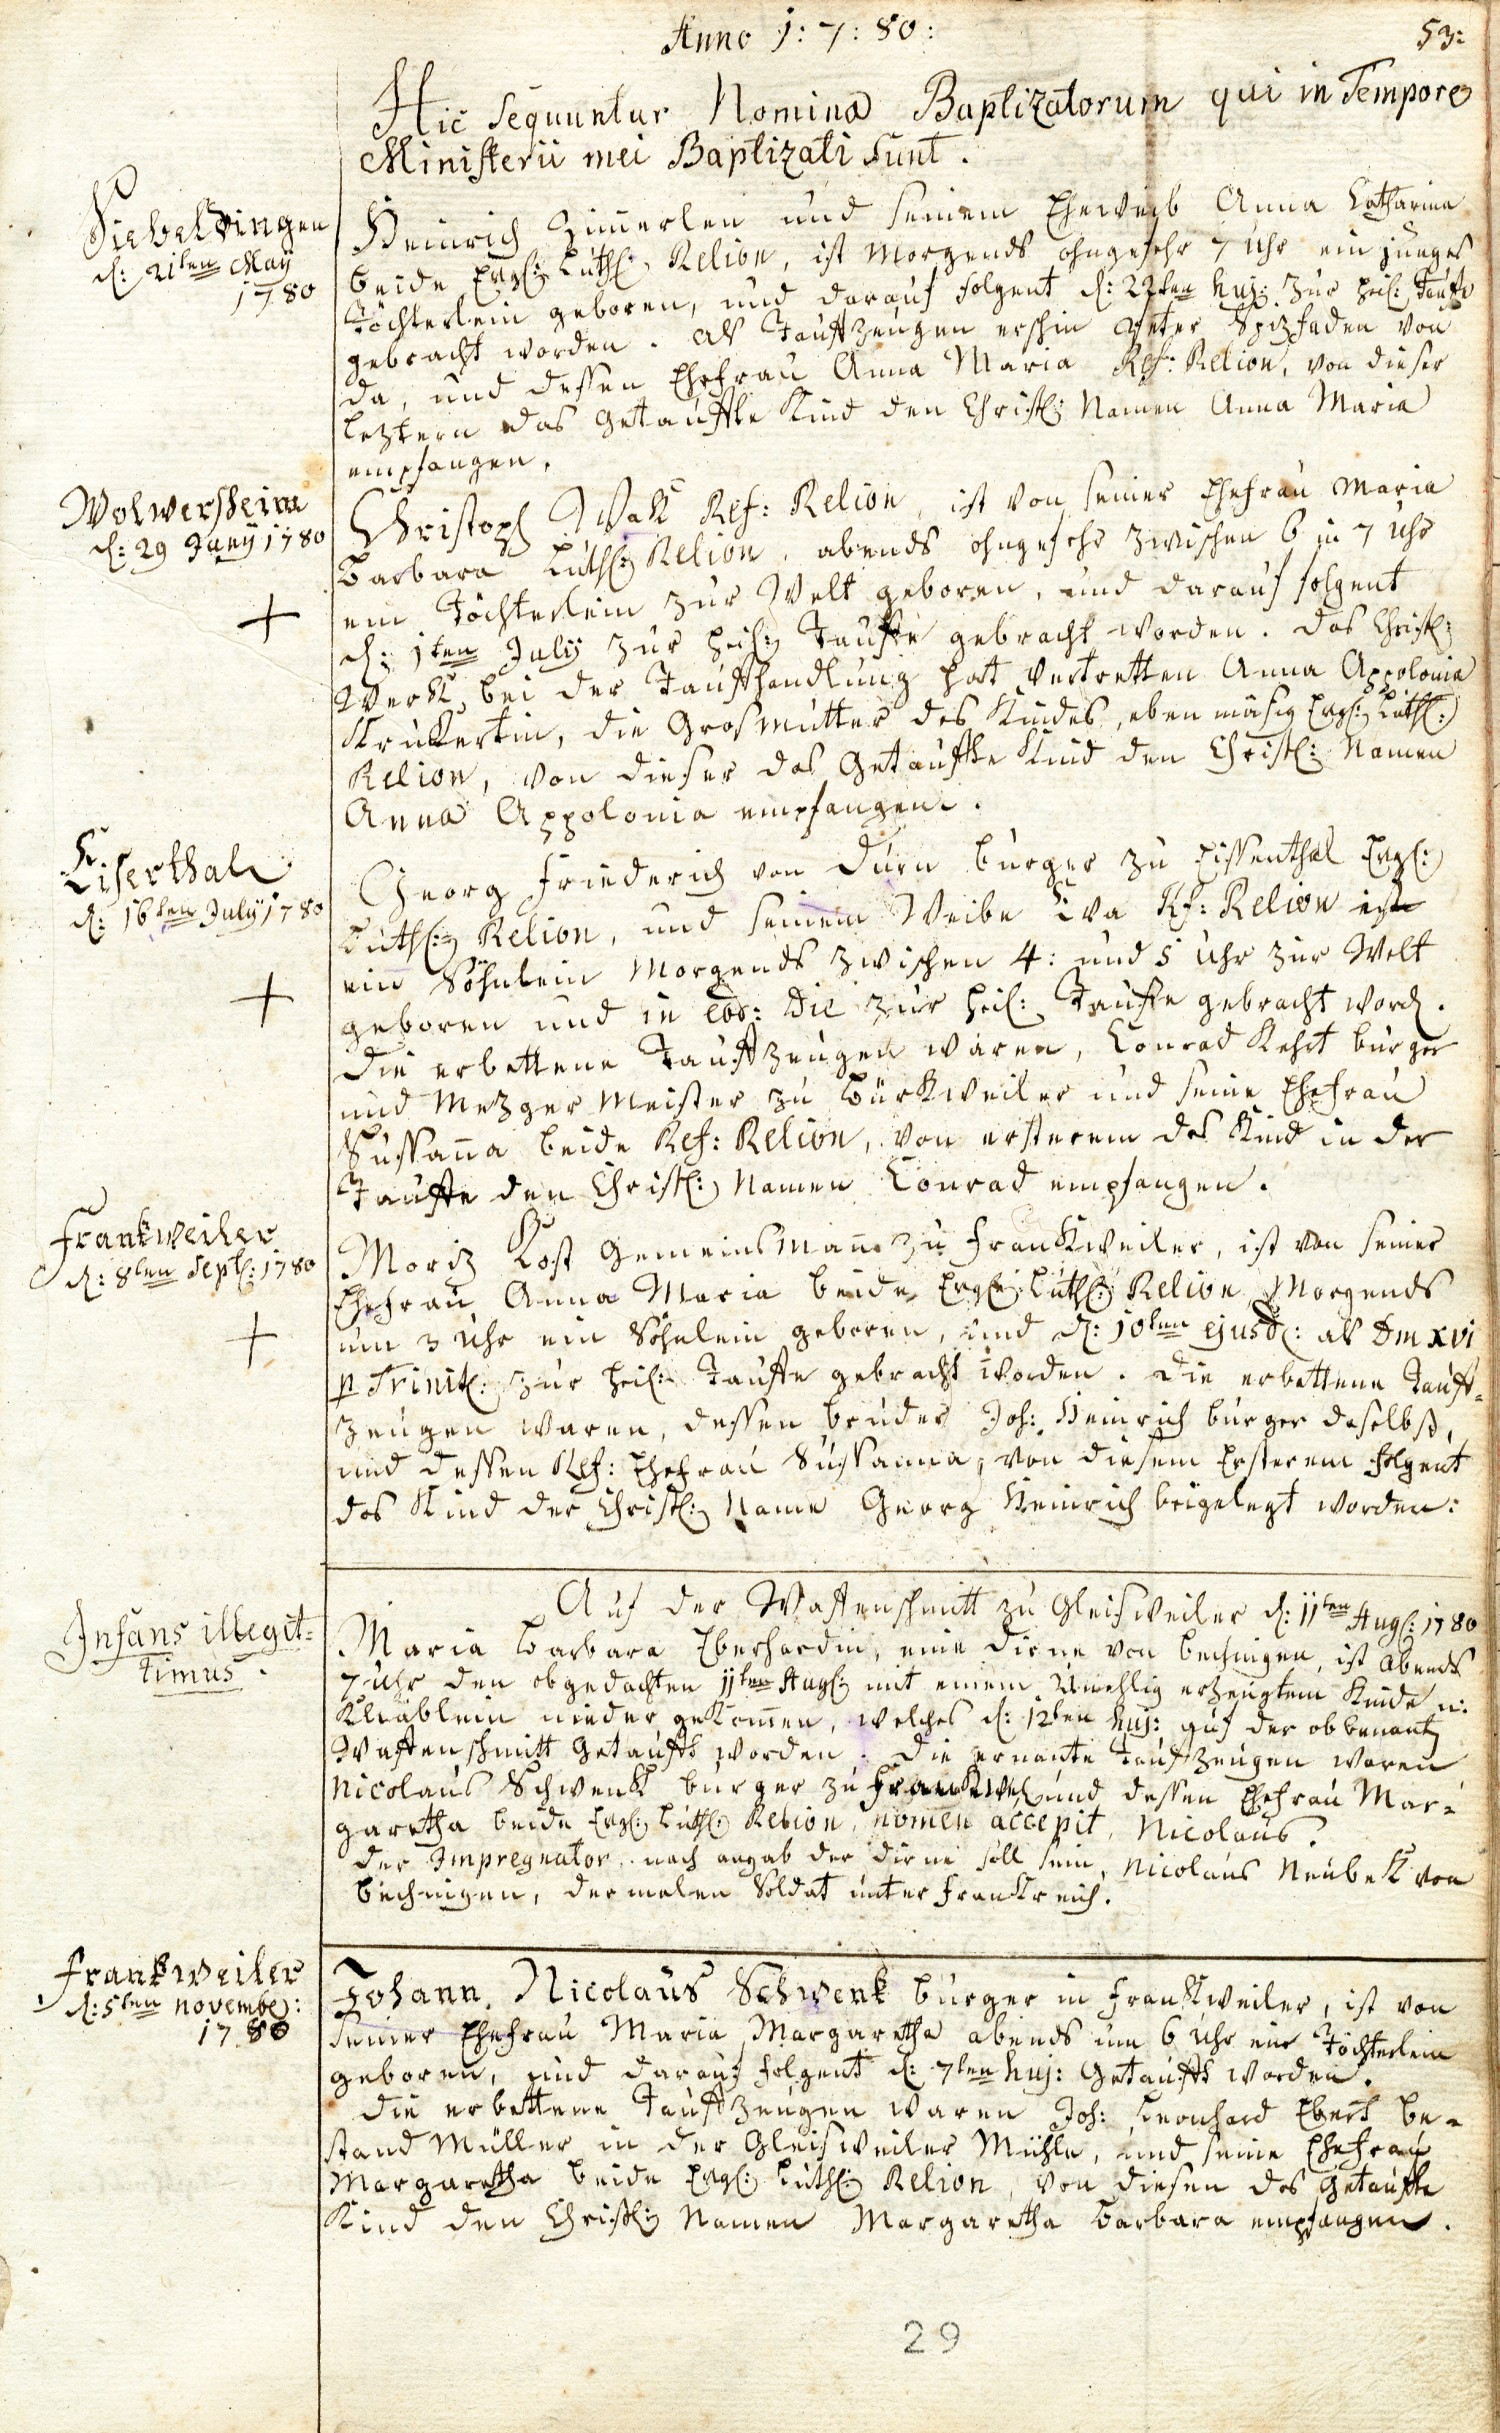 Anno 1:7:80:
53:
Hic Sequuntur Nomina Baptizatorum qui in Tempore
Ministerii mei Baptizati sunt.
Siebeldingen
d: 21ten May
1780
Heinrich Zim̄erlen und seinem Eheweib Anna Catharina
beide Evgl: Luthl: Relion, ist morgends ohngefehr 7 Uhr ein junges
Töchterlein geboren, und darauf folgent d: 22ten huj: zur heil: Tauffe
gebracht worden. Als Tauffzeugen erschin Peter Spizfaden von
da, und dessen Ehefrau Anna Maria Ref: Relion, von dieser
leztern das Getauffte Kind den Christl: Namen Anna Maria
empfangen.
Wolmersheim
d: 29 Juny 1780
Christoph Wak Ref: Relion, ist von seiner Ehefrau Maria
Barbara Luthl: Relion, abends ohngefehr zwischen 6 u 7 Uhr
ein Töchterlein zur Welt geboren, und darauf folgent
d: 1ten July zur heil: Tauffe gebracht worden. Das Christl:
Werk bei der Tauffhandlung hat vertretten Anna Appolonia
Krukertin, die Grosmutter des Kindes, eben mäsig Evgl: Luthl:
Relion, von dieser das Getauffte Kind den Christl: Namen
Anna Appolonia empfangen.
Eiserthal
d: 16ten July 1780
Georg Friederich von Dürn burger zu Eissenthal Evgl:
Luthl: Relion, und seinem Weibe Eva Rf: Relion ist
ein Söhnlein Morgends zwischen 4: und 5 Uhr zur Welt
geboren und in eod: Die zur heil: Tauffe gebracht word.
Die erbettene Tauffzeugen waren, Conrad Kehrt burger
und Mezger Meister zu Bürkweiler und seine Ehefrau
Sussan̄a beide Ref: Relion, von ersterem das Kind in der
Tauffe den Christl: Namen Conrad empfangen.
Frankweiler
d: 8ten Sept: 1780
Moriz Kost Gemeinsman̄ zu Frankweiler, ist von seiner
Ehefrau Anna Maria beide Evgl: Luthl: Relion Morgends
um 3 Uhr ein Söhnlein geboren, und d: 10ten ejusd: als Dm XVI
p Trinit: zur heil: Tauffe gebracht worden. Die erbettene Tauff=
zeugen waren, dessen bruder Joh: Heinrich burger daselbst,
und dessen Ref: Ehefrau Sussanna, von diesem Ersterem folgent
das Kind der Christl: Name Georg Heinrich beigelegt worden:
Infans illegit=
timus.
Auf der Waffenschmitt zu Gleisweiler d: 11ten Aug: 1780
Maria Barbara Eberhardin, eine Dirne von bechingen, ist abends
7 Uhr den obgedachten 11ten Aug: mit einem Unehlig erzeugtem Kinde
Knäblein nieder gekom̄en, welches d: 12ten huj: auf der obbenant
Waffenschmitt Getaufft worden. Die ernante Taufzeugen waren
Nicolaus Schwenk burger zu Frankwel und dessen Ehefrau Mar=
garetha beide Evgl: Luthl: Relion, nomen accepit, Nicolaus.
Der Impregnator nach angab der dirne soll sein, Nicolaus Neubek von
bechingen, dermalen Soldat unter Frankreich.
Frankweiler
d: 5ten Novembr:
1780
Johann Nicolaus Schwenk burger in Frankweiler, ist von
seiner Ehefrau Maria Margaretha abends um 6 Uhr ein Töchterlein
geboren, und darauf folgent d: 7ten huj: Getaufft worden.
Die erbettene Tauffzeugen waren Joh: Leonhard Ebert be=
stand Müller in der Gleisweiler Mühle, und seine Ehefrau
Margaretha beide Evgl: Luthl: Relion, von diesen das Getauffte
Kind den Christl: Namen Margaretha Barbara empfangen.
29